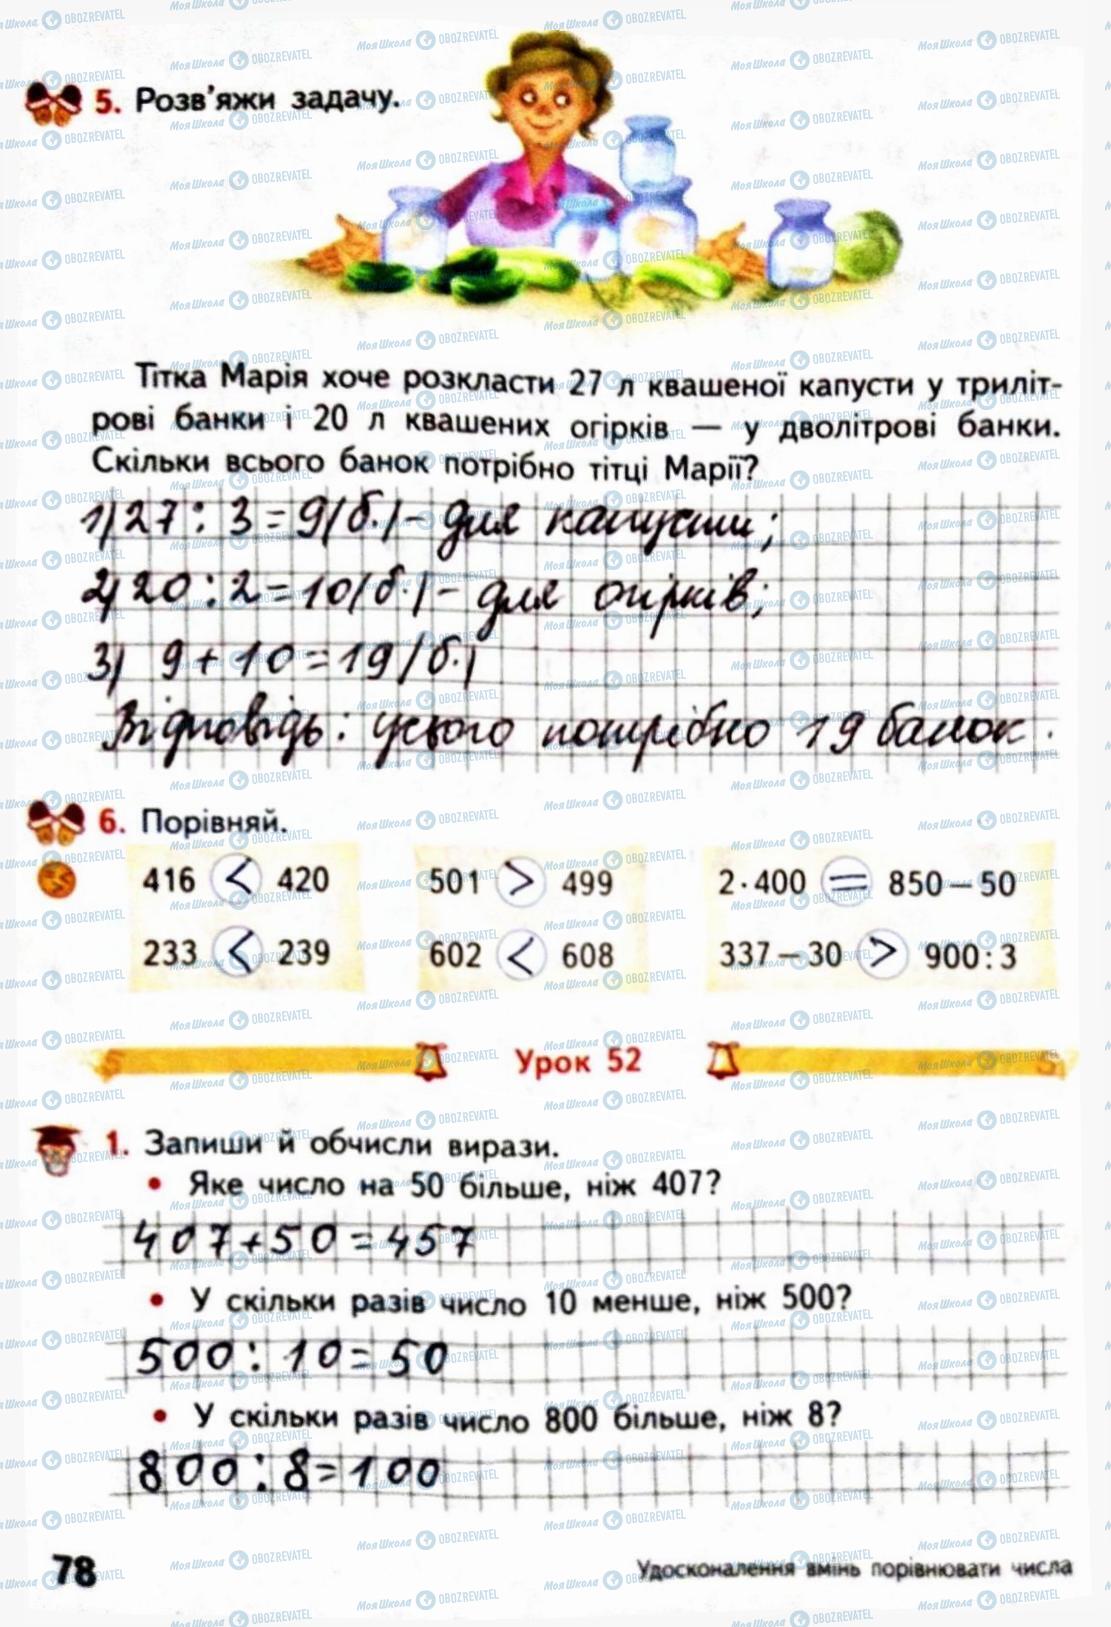 5. Розв'яжи задачу.
Тітка Марія хоче розкласти 27 л квашеної капусти у триліт-
рові банки і 20 л квашених огірків — у дволітрові банки.
Скільки всього банок потрібно тітці Марії?
1) 27 : 3 = 9 (б.) - для капусти;
2) 20 : 2 = 10 (б.) - для огірків;
3) 9 + 10 = 19 (б.)
Відповідь: усього потрібно 19 банок.
6. Порівняй.
416 < 420 501 > 499 2 · 400 = 850 – 50
233 < 239 602 < 608 337 – 30 > 900 : 3
Урок 52
1. Запиши й обчисли вирази.
• Яке число на 50 більше, ніж 407?
407 + 50 = 457
• У скільки разів число 10 менше, ніж 500?
500 : 10 = 50
• У скільки разів число 800 більше, ніж 8?
800 : 8 = 100
78 Удосконалення вмінь порівнювати числа
МояШкола OBOZREVATEL